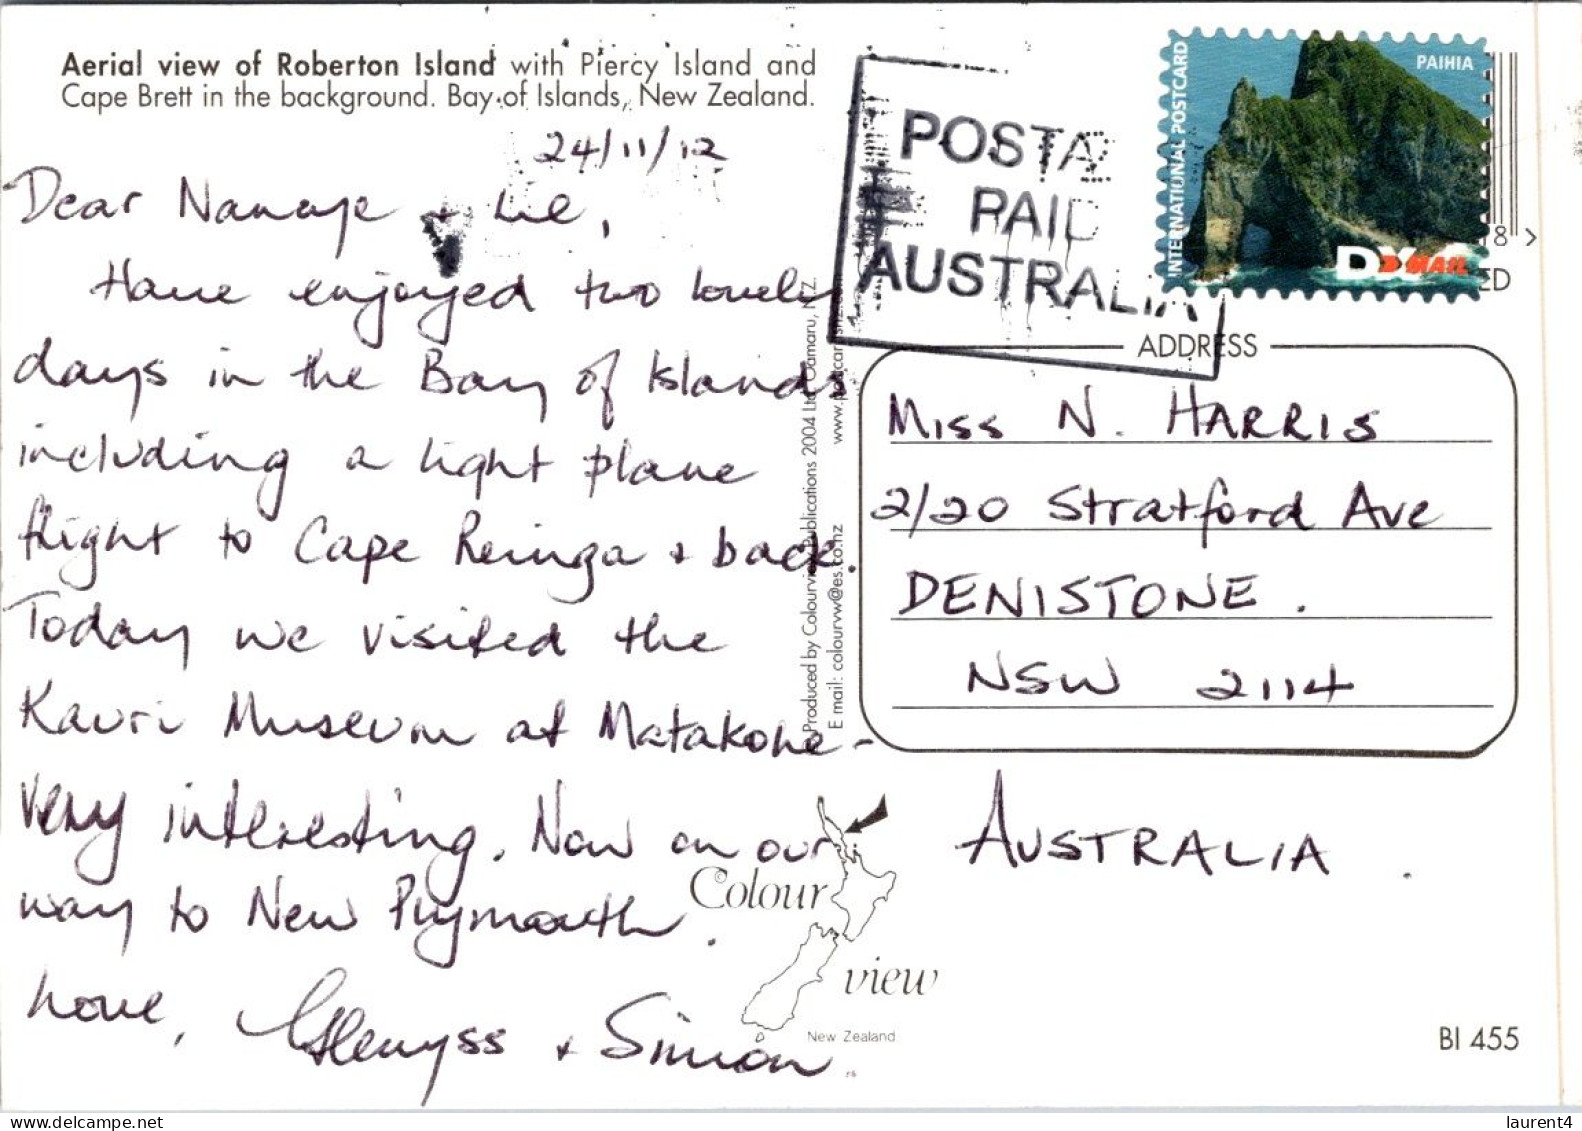 Aerial view of Roberton Island with Piercy Island and
Cape Brett in the background. Bay of Islands, New Zealand.
24/11/12
Dear & Lil,
Have enjoyed two lovely
days in the Bay of Islands
including a light plane
flight to Cape Reinga & back.
Today we visited the
Kauri Museum at Matakohe -
very interesting. Now on our
way to New Plymouth.
Love, Glenyss & Simon
POSTAGE
PAID
AUSTRALIA
INTERNATIONAL POSTCARD
PAIHIA
DX MAIL
8 >
ED
ADDRESS
Miss N. HARRIS
2/20 Stratford Ave
DENISTONE.
NSW 2114
AUSTRALIA.
Produced by Colourview Publications 2004 Ltd, Oamaru, NZ.
E mail: colourvw@es.co.nz
©Colour
view
New Zealand
BI 455
laurent4